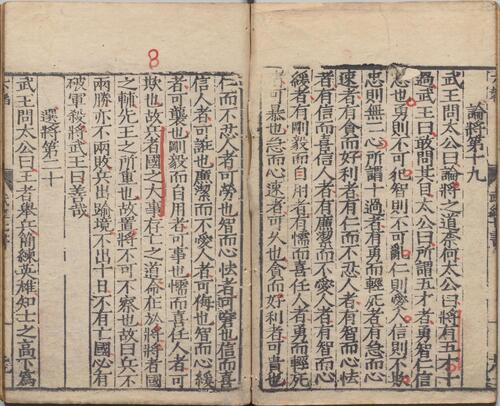 論將第十九
武王問太公曰論將之道柰何太公曰將有五才十
過武王曰敢問其目太公曰所謂五才者勇智仁信
忠也勇則不可犯智則不可亂仁則愛人信則不欺
忠則無二心所謂十過者有勇而輕死者有急而心
速者有貪而好利者有仁而不忍人者有智而心怯
者有信而喜信人者有廉潔而不愛人者有智而心
緩者有剛毅而自用者有懦而喜任人者勇而輕死
者可暴也急而心速者可久也貪而好利者可遺也
8
仁而不忍人者可勞也智而心怯者可窘也信而喜
信人者可誑也廉潔而不愛人者可侮也智而心緩
者可襲也剛毅而自用者可事也懦而喜任人者可
欺也故兵者國之大事存亡之道命在於將將者國
之輔先王之所重也故置將不可不察也故曰兵不
兩勝亦不兩敗兵出踰境不出十日不有亡國必有
破軍殺將武王曰善哉
選將第二十
武王問太公曰王者舉兵簡練英雄知士之高下為